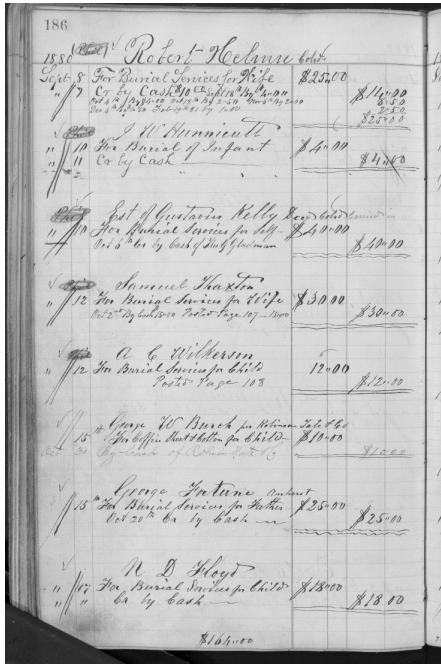 186
1880 Robert Helmn Cold
Sept 8 For Burial Services for Wife $25.00
" 7 Cr by Cash $10 Sept 18th By 4.00 $14.00
Oct 4th By $4.00 Oct 19th By 2.50 Nov 6th By 2.00 6.50
Dec 4th By Feby By 1.00 2.50
$25.00
J W Hunnicutt
" 10 For Burial of Infant $4.00
" 11 Cr by Cash $4.00
Est of Gustavus Kelly Decd Cold
" 10 For Burial Services for Self $40.00
Oct 6th Cr by Cash of Gladman $40.00
Samuel Thaxton
" 12 For Burial Services for Wife $30.00
Oct 2nd By Cash 15.00 Posted Page 107 – 15.00 $30.00
A C Wilkerson
" 12 For Burial Services for Child 12.00
Posted Page 108 $12.00
George W Burch per Robinson Tate & Co
" 15th For Coffin Sheet & Cotton for Child $10.00
Oct by Robinson Tate & Co $10.00
George Fortune Amherst
" 15th For Burial Services for Father $25.00
Oct 20th Cr by Cash $25.00
N D Floyd
" 17 For Burial Services for Child $18.00
" " Cr by Cash $18.00
$164.00